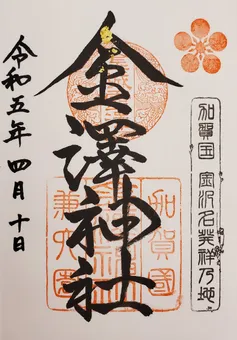 加賀国 金沢名発祥乃地
金澤神社
加賀國
兼六園
令和五年 四月 十日